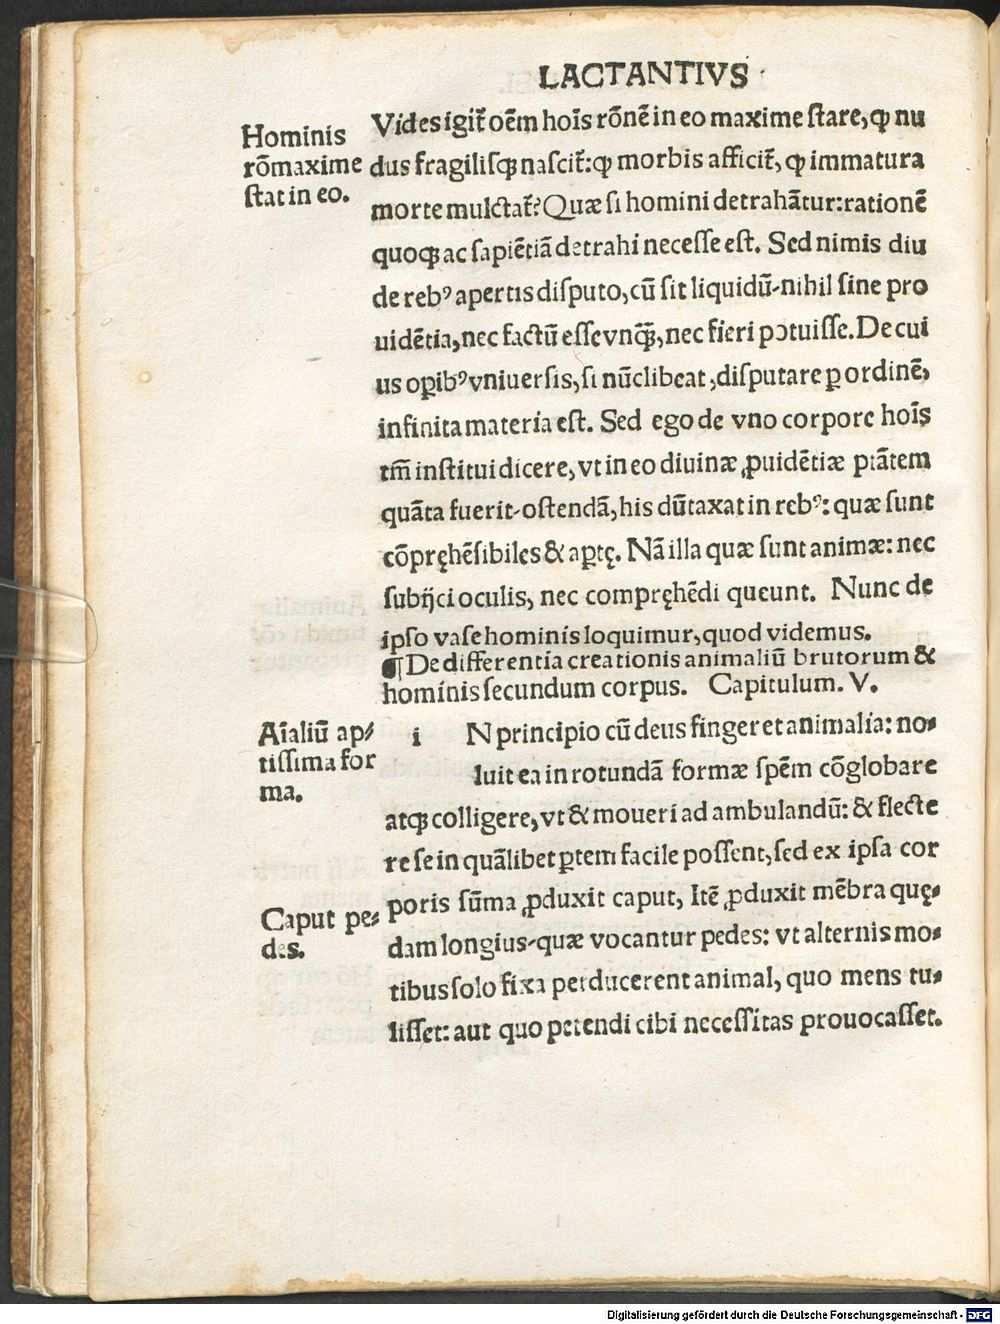 LACTANTIVS
Hominis
rōmaxime
stat in eo.
Vides igit̃ oēm hoīs rōnē in eo maxime ſtare, ꝙ nu
dus fragiliſꝗ naſcit̃: ꝙ morbis afficit̃, ꝙ immatura
morte mulctat̃? Quæ ſi homini detrahātur: rationē
quoꝗ ac ſapiētiā detrahi neceſſe eſt. Sed nimis diu
de rebꝰ apertis diſputo, cū ſit liquidū-nihil ſine pro
uidētia, nec factū eſſe vnꝗ̃, nec fieri potuiſſe. De cui
us oꝑibꝰ vniuerſis, ſi nūc libeat, diſputare ꝑ ordinē,
infinita materia eſt. Sed ego de vno corpore hoīs
tm̄ inſtitui dicere, vt in eo diuinæ ꝓuidētiæ ptātem
quāta fuerit-oſtendā, his dūtaxat in rebꝰ: quæ ſunt
cōpręhēſibiles & aꝑtę. Nā illa quæ ſunt animæ: nec
ſubijci oculis, nec compręhēdi queunt. Nunc de
ipſo vaſe hominis loquimur, quod videmus.
¶ De differentia creationis animaliū brutorum &
hominis ſecundum corpus. Capitulum. V.
Aīaliū ap⸗
tiſſima for
ma.
i N principio cū deus fingeret animalia: no⸗
luit ea in rotundā formæ ſpēm cōglobare
atꝗ colligere, vt & moueri ad ambulandū: & flecte
re ſe in quālibet ꝑtem facile poſſent, ſed ex ipſa cor
poris ſūma ꝓduxit caput, Itē ꝓduxit mēbra quę⸗
Caput pe⸗
des.
dam longius-quæ vocantur pedes: vt alternis mo⸗
tibus ſolo fixa perducerent animal, quo mens tu⸗
liſſet: aut quo petendi cibi neceſſitas prouocaſſet.
Digitalisierung gefördert durch die Deutsche Forschungsgemeinschaft - DFG